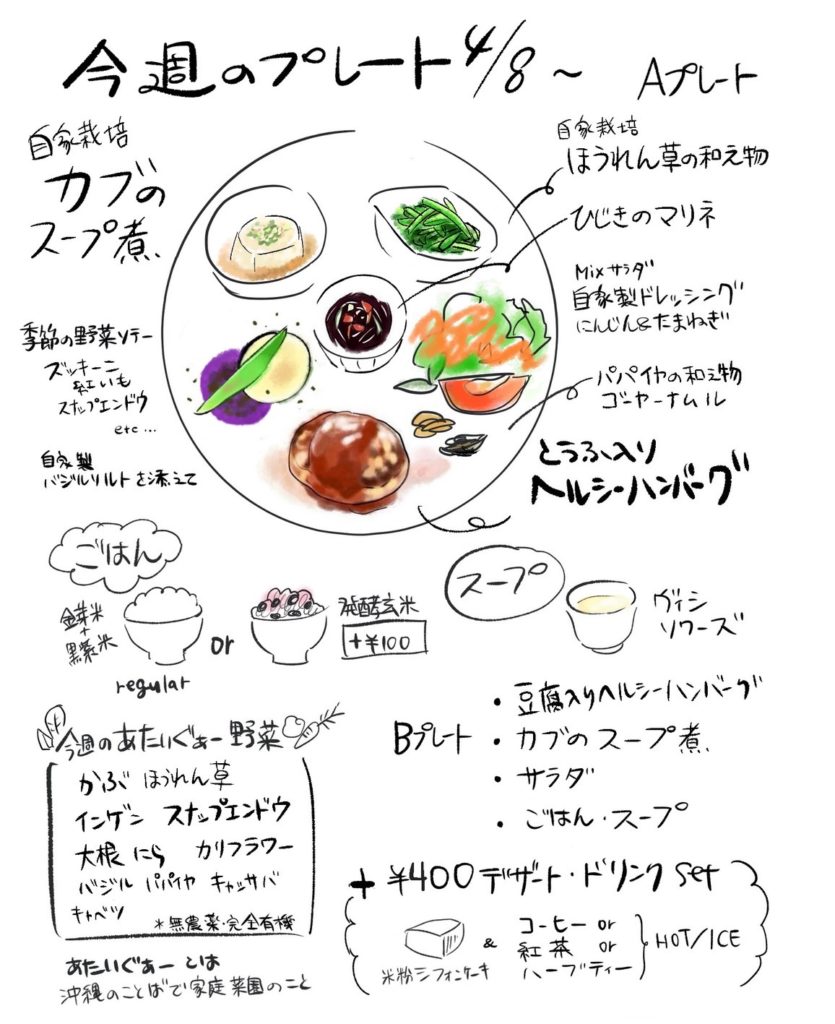 今週のプレート 4/8〜 Aプレート
自家栽培
カブの
スープ煮
自家栽培
ほうれん草の和え物
ひじきのマリネ
Mixサラダ
自家製ドレッシング
にんじん&たまねぎ
季節の野菜ソテー
ズッキーニ
紅いも
スナップエンドウ
etc...
自家製
バジルソルトを添えて
パパイヤの和え物
ゴーヤーナムル
とうふ入り
ヘルシーハンバーグ
ごはん
金芽米
+
黒紫米
regular
or
発酵玄米
+¥100
スープ
ヴィシ
ソワーズ
今週のあたいぐゎー野菜
かぶ ほうれん草
インゲン スナップエンドウ
大根 にら カリフラワー
バジル パパイヤ キャッサバ
キャベツ
*無農薬・完全有機
あたいぐゎーとは
沖縄のことばで家庭菜園のこと
Bプレート
・豆腐入りヘルシーハンバーグ
・カブのスープ煮
・サラダ
・ごはん・スープ
+ ¥400 デザート・ドリンク set
米粉シフォンケーキ
&
コーヒー or
紅茶 or
ハーブティー
HOT/ICE